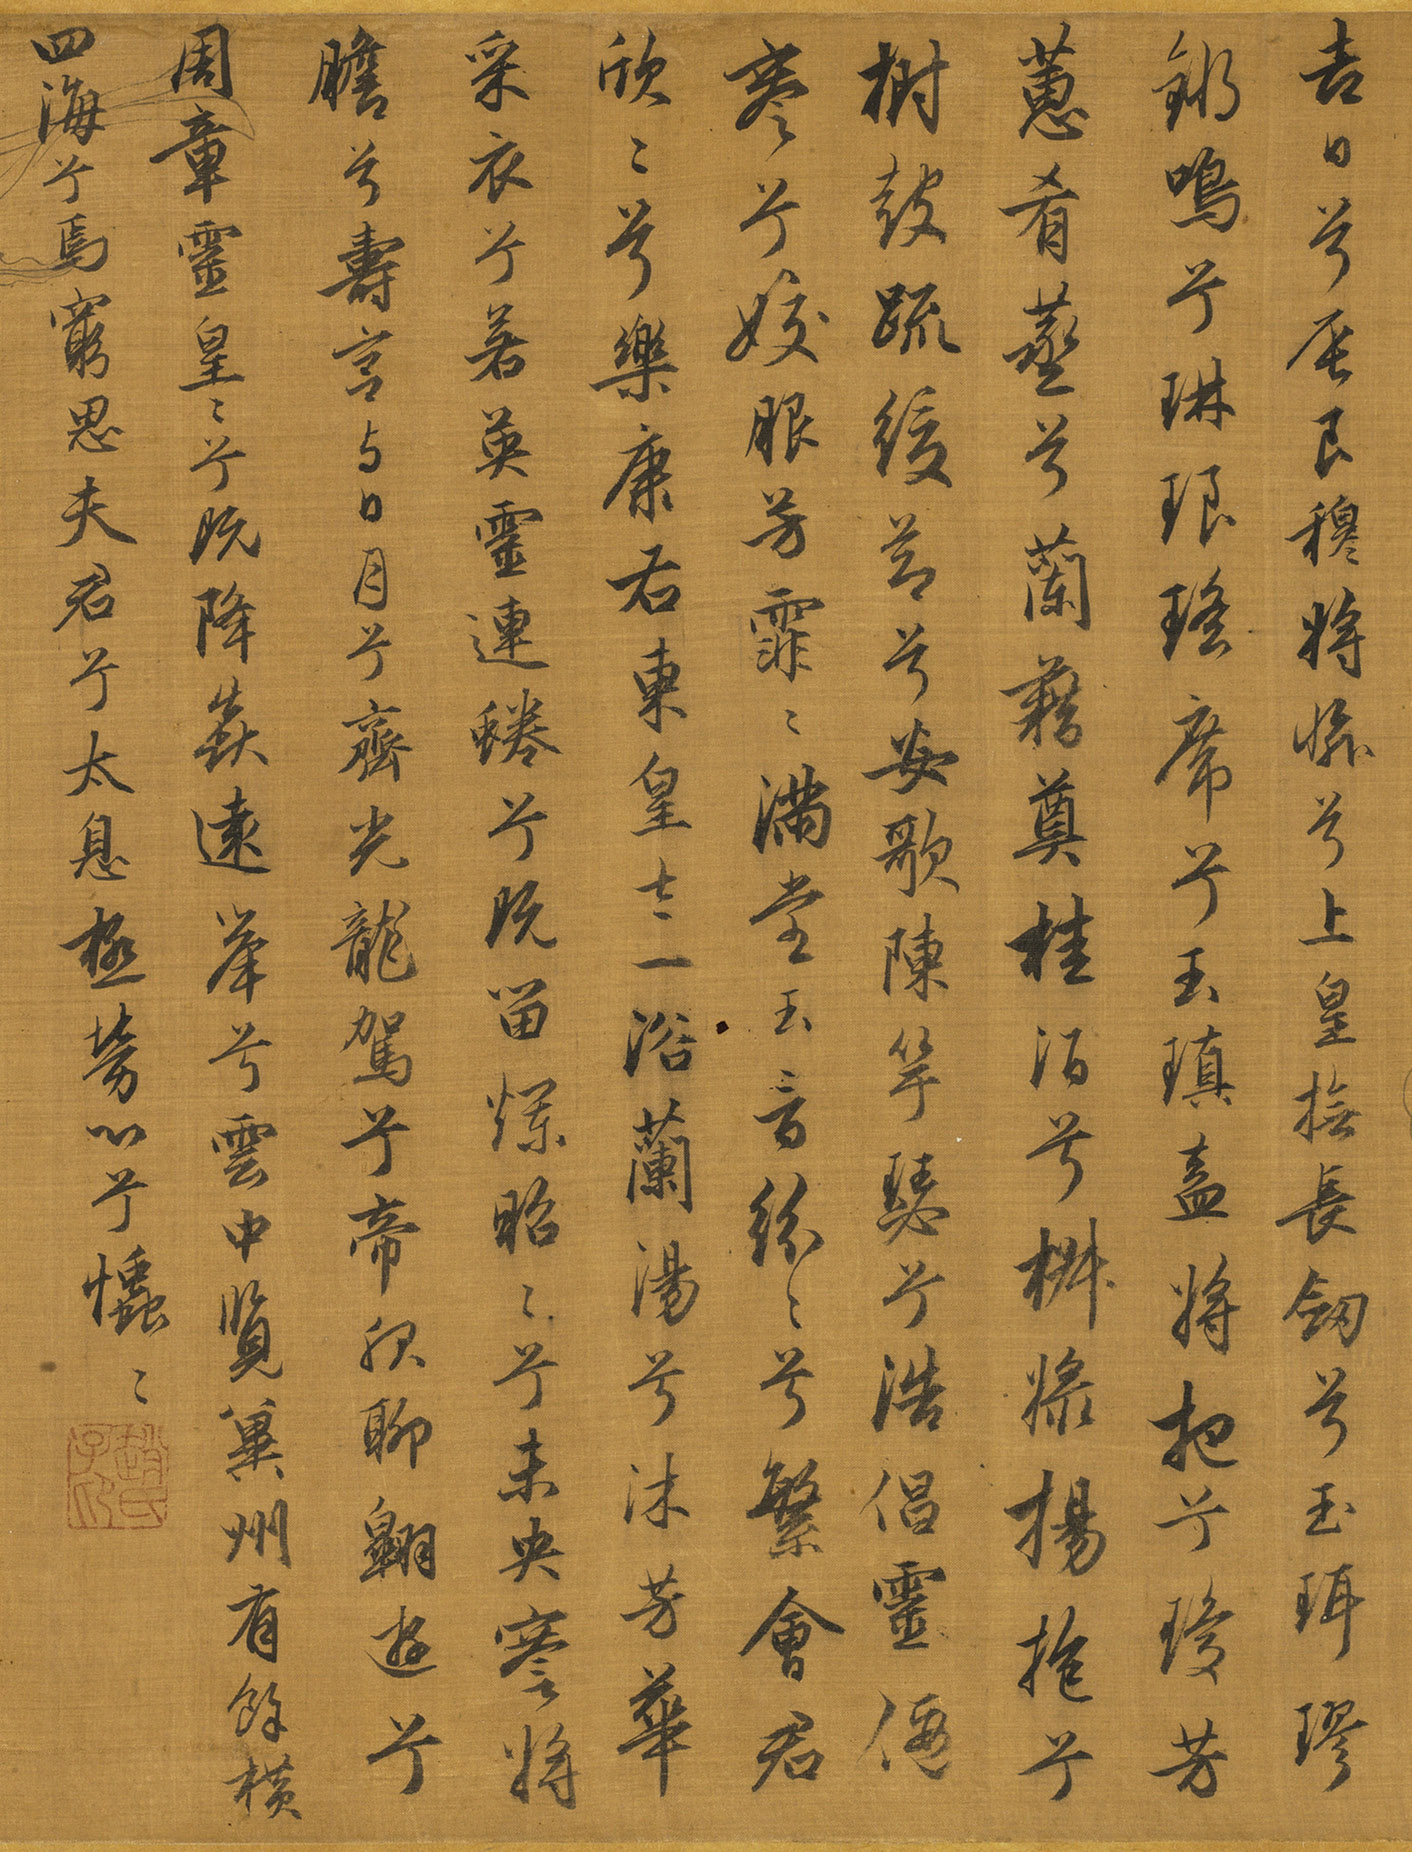 吉日兮辰良穆將愉兮上皇撫長劒兮玉珥璆
鏘鳴兮琳琅瑤席兮玉瑱盍將把兮瓊芳
蕙肴蒸兮蘭藉奠桂酒兮椒漿揚枹兮
拊鼓疏緩節兮安歌陳竽瑟兮浩倡靈偃
蹇兮姣服芳霏〻滿堂五音紛〻兮繁會君
欣〻兮樂康右東皇太一浴蘭湯兮沐芳華
采衣兮若英靈連蜷兮既留爛昭〻兮未央蹇將
憺兮壽宮与日月兮齊光龍駕兮帝服聊翱遊兮
周章靈皇〻兮既降猋遠舉兮雲中覽冀州有餘橫
四海兮焉窮思夫君兮太息極勞心兮𢥞〻
趙氏子昂